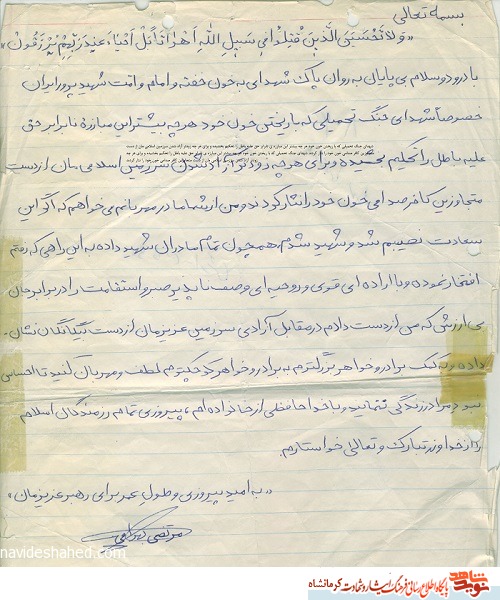 بسمه تعالی
«ولا تحسبن الذین قتلوا فی سبیل الله امواتا بل احیاء عند ربهم یرزقون»
با درود و سلام بی پایان به روان پاک شهدای به خون خفته و امام و امت شهید پرور ایران
خصوصاً شهدای جنگ تحمیلی که با ریختن خون خود هر چه بیشتر این مبارزهٔ نابرابر حق
علیه باطل را تحکیم بخشیده و برای هر چه زودتر آزاد شدن سرزمین اسلامی مان از دست
متجاوزین کافر صدامی خون خود را نثار کردند و من از شما مادر مهربانم می خواهم که اگر این
سعادت نصیبم شد و شهید شدم همچون تمام مادران شهید داده به این راهی که رفتم
افتخار نموده و با اراده ای قوی و روحیه ای وصف ناپذیر صبر و استقامت را در برابر جان
بی ارزشی که من از دست دادم در مقابل آزادی سرزمین عزیزمان از دست بیگانگان نشان
داده و به کمک برادر و خواهر بزرگترم به برادر و خواهر کوچکترم لطف و مهربان کنید تا احساس
نبود مرا در زندگی ننمایند و با خداحافظی از خانواده ام، پیروزی تمام رزمندگان اسلام
را از خداوند تبارک و تعالی خواستارم.
«به امید پیروزی و طول عمر برای رهبر عزیزمان»
مرتضی
navideshahed.com
نوید شاهد
پایگاه اطلاع رسانی فرهنگ ایثار و شهادت کرمانشاه